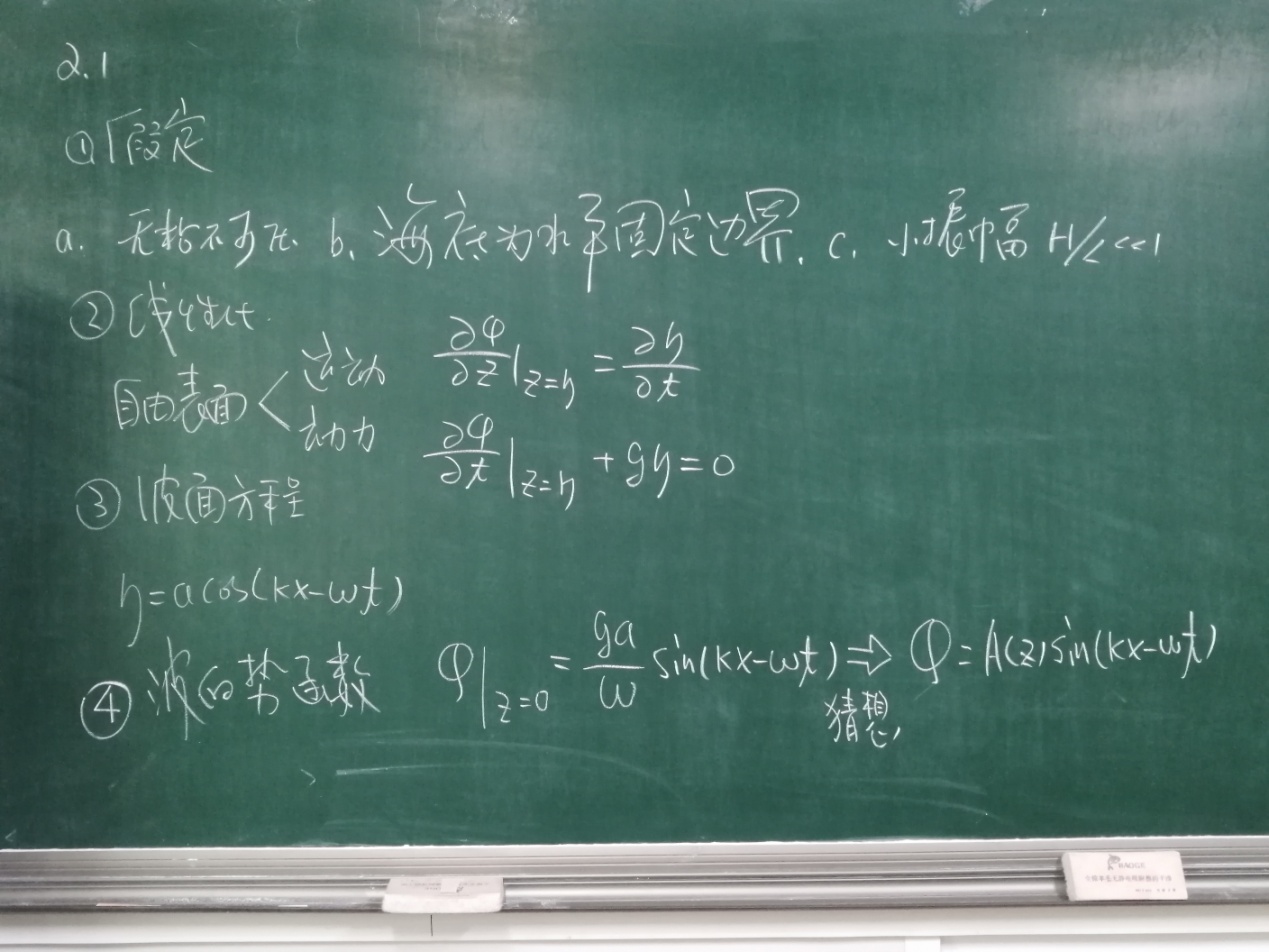 2.1
①假设定
a. 无粘不可压. b. 海底为水平固定边界. c. 小振幅 H/L<<1
②线性化.
自由表面 < 运动 ∂φ/∂z|z=η = ∂η/∂t
动力 ∂φ/∂t|z=η + gη = 0
③波面方程
η=acos(kx-ωt)
④波的势函数 φ|z=0 = ga/ω sin(kx-ωt) ⇒ φ=A(z)sin(kx-ωt)
猜想